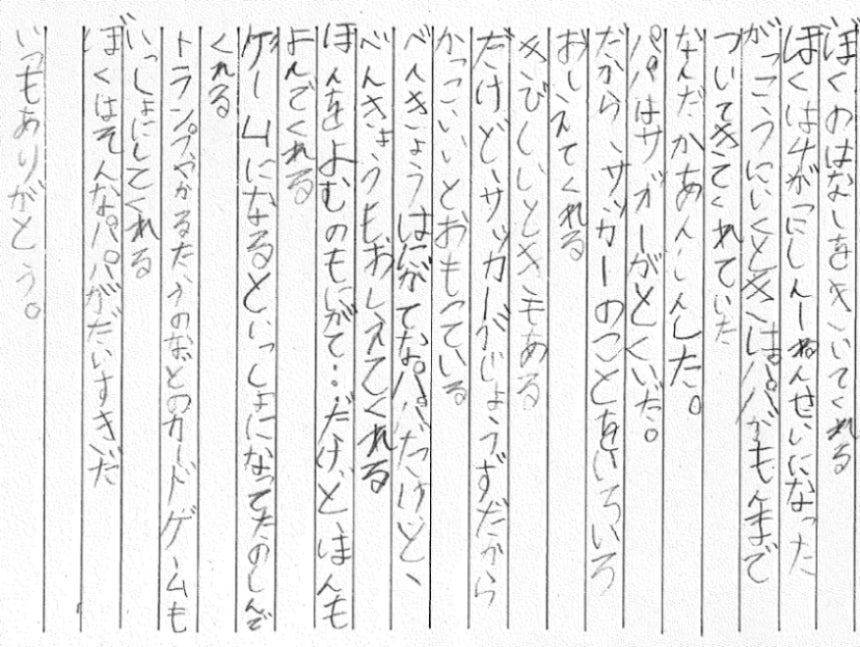 ぼくのはなしをきいてくれる
ぼくは4がつにしんーねんせいになった
がっこうにいくときはパパがもんまで
ついてきてくれていた
なんだかあんしんした。
パパはサッカーがとくいだ。
だから、サッカーのことをいろいろ
おしえてくれる
きびしいときもある
だけど、サッカーがじょうずだから
かっこいいとおもっている
べんきょうはにがてなパパだけど、
べんきょうもおしえてくれる
ほんをよむのもにがて‥だけどほんも
よんでくれる
ゲームになるといっしょになってたのしんで
くれる
トランプやかるたうのなどのカードゲームも
いっしょにしてくれる
ぼくはそんなパパがだいすきだ
いつもありがとう。